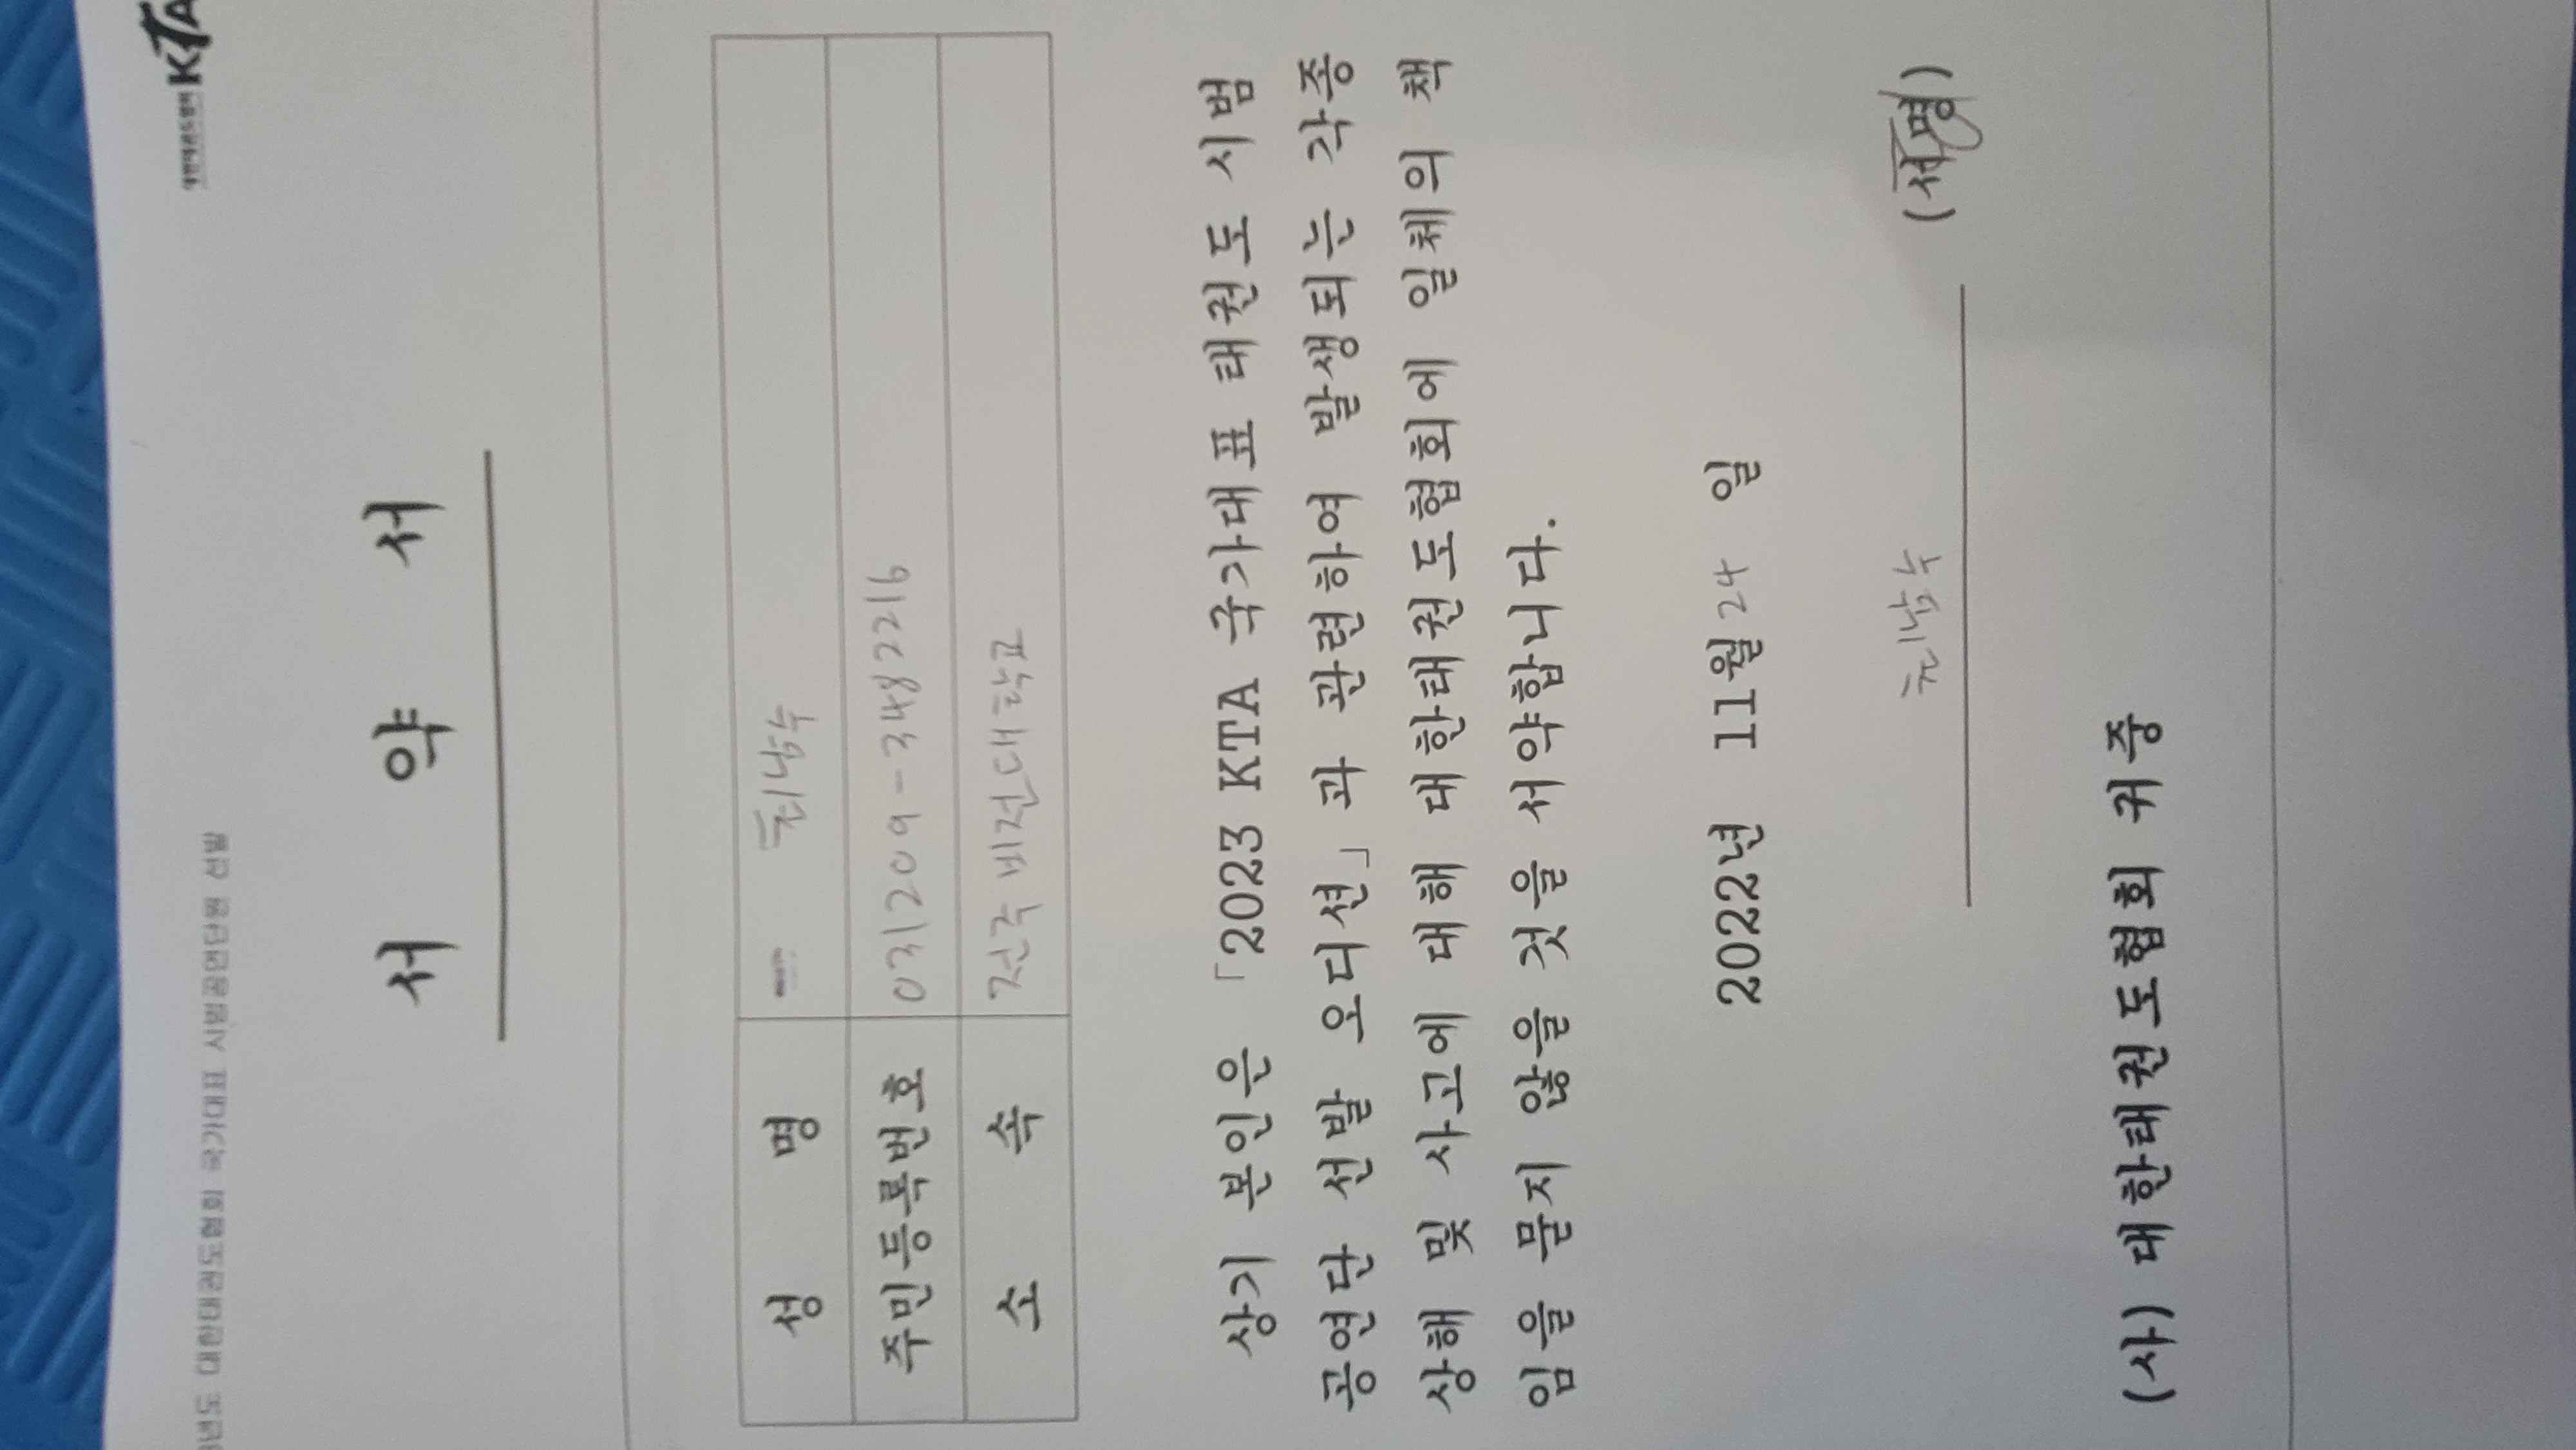 년도 대한태권도협회 국가대표 시범공연단원 선발 대한태권도협회 KTA
서 약 서
성 명 최남수
주민등록번호 031209-3482216
소 속 전주비전대학교
상기 본인은 「2023 KTA 국가대표 태권도 시범
공연단 선발 오디션」과 관련하여 발생되는 각종
상해 및 사고에 대해 대한태권도협회에 일체의 책
임을 묻지 않을 것을 서약합니다.
2022년 11월 24 일
최남수 (서명)
(사) 대한태권도협회 귀중